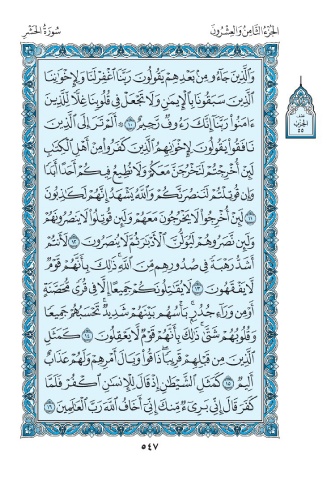 الجزء الثامن والعشرون
سورة الحشر
وَالَّذِينَ جَاءُو مِنْ بَعْدِهِمْ يَقُولُونَ رَبَّنَا اغْفِرْ لَنَا وَلِإِخْوَانِنَا
الَّذِينَ سَبَقُونَا بِالْإِيمَانِ وَلَا تَجْعَلْ فِي قُلُوبِنَا غِلًّا لِلَّذِينَ
ءَامَنُوا رَبَّنَا إِنَّكَ رَءُوفٌ رَحِيمٌ ١٠ ۞ أَلَمْ تَرَ إِلَى الَّذِينَ
نَافَقُوا يَقُولُونَ لِإِخْوَانِهِمُ الَّذِينَ كَفَرُوا مِنْ أَهْلِ الْكِتَابِ
لَئِنْ أُخْرِجْتُمْ لَنَخْرُجَنَّ مَعَكُمْ وَلَا نُطِيعُ فِيكُمْ أَحَدًا أَبَدًا
وَإِنْ قُوتِلْتُمْ لَنَنْصُرَنَّكُمْ وَاللَّهُ يَشْهَدُ إِنَّهُمْ لَكَاذِبُونَ
١١ لَئِنْ أُخْرِجُوا لَا يَخْرُجُونَ مَعَهُمْ وَلَئِنْ قُوتِلُوا لَا يَنْصُرُونَهُمْ
وَلَئِنْ نَصَرُوهُمْ لَيُوَلُّنَّ الْأَدْبَارَ ثُمَّ لَا يُنْصَرُونَ ١٢ لَأَنْتُمْ
أَشَدُّ رَهْبَةً فِي صُدُورِهِمْ مِنَ اللَّهِ ذَلِكَ بِأَنَّهُمْ قَوْمٌ
لَا يَفْقَهُونَ ١٣ لَا يُقَاتِلُونَكُمْ جَمِيعًا إِلَّا فِي قُرًى مُحَصَّنَةٍ
أَوْ مِنْ وَرَاءِ جُدُرٍ بَأْسُهُمْ بَيْنَهُمْ شَدِيدٌ تَحْسَبُهُمْ جَمِيعًا
وَقُلُوبُهُمْ شَتَّى ذَلِكَ بِأَنَّهُمْ قَوْمٌ لَا يَعْقِلُونَ ١٤ كَمَثَلِ
الَّذِينَ مِنْ قَبْلِهِمْ قَرِيبًا ذَاقُوا وَبَالَ أَمْرِهِمْ وَلَهُمْ عَذَابٌ
أَلِيمٌ ١٥ كَمَثَلِ الشَّيْطَانِ إِذْ قَالَ لِلْإِنْسَانِ اكْفُرْ فَلَمَّا
كَفَرَ قَالَ إِنِّي بَرِيءٌ مِنْكَ إِنِّي أَخَافُ اللَّهَ رَبَّ الْعَالَمِينَ ١٦
الحزب
٥٥
٥٤٧